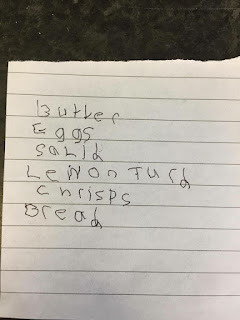 Butter
Eggs
Salid
Lemon Turd
Chrisps
Bread